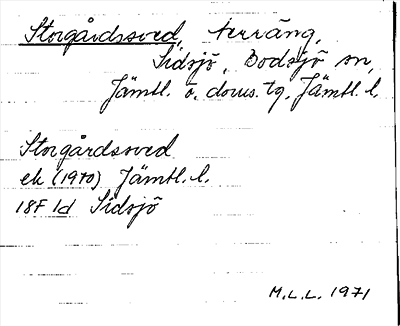 Storgårdssved, terräng,
Sidsjö, Bodsjö sn,
Jämtl. ö. doms. tg, Jämtl. l.
Storgårdssved
ek (1970) Jämtl. l.
18F 1d Sidsjö
M.L.L. 1971